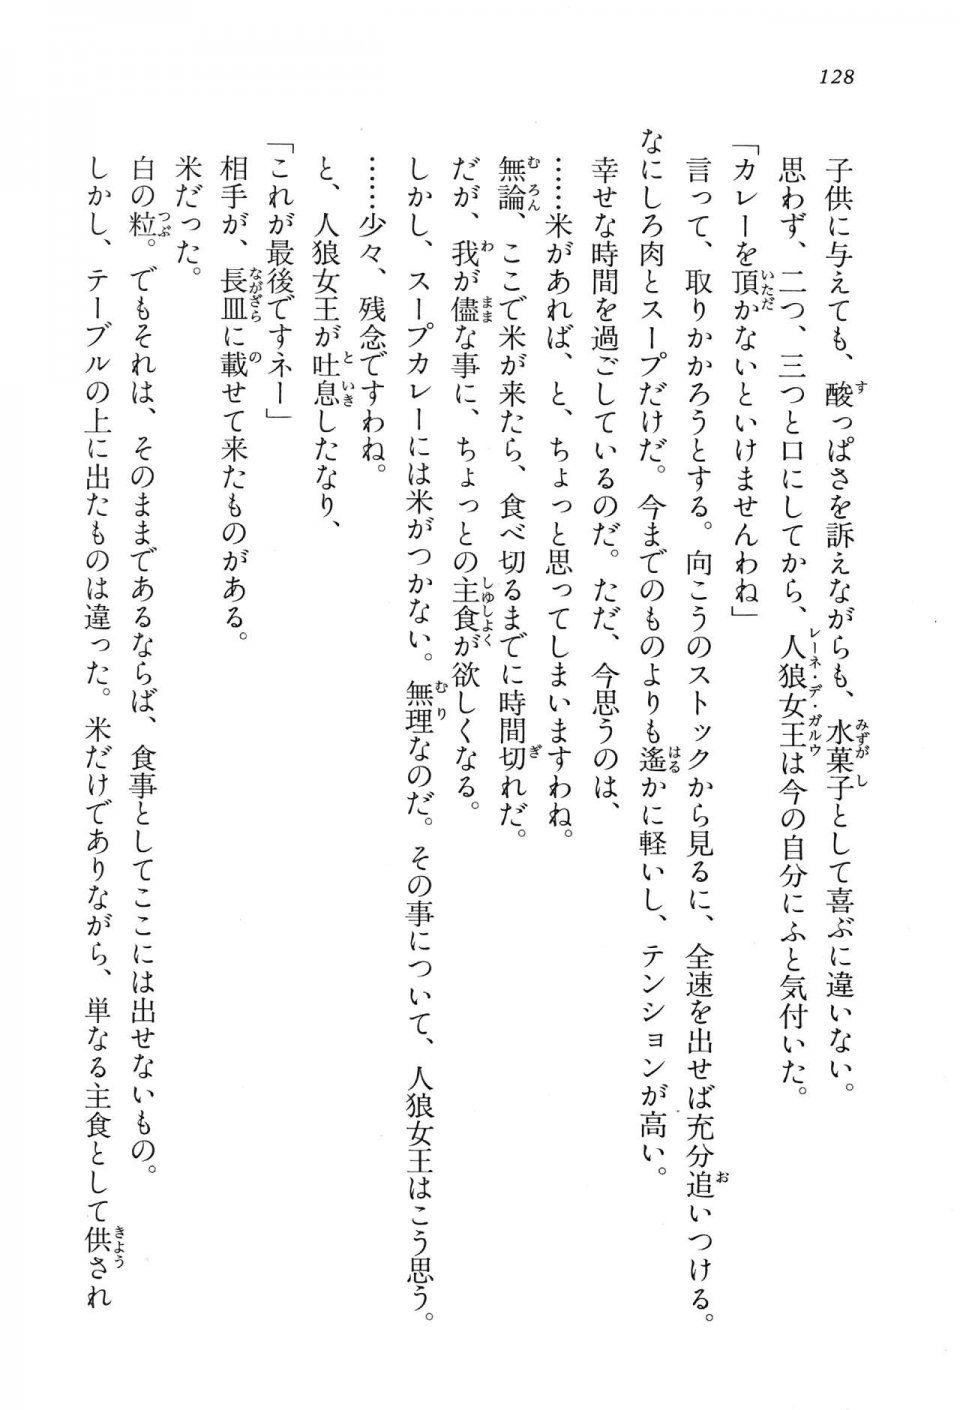 128
子供に与えても、酸っぱさを訴えながらも、水菓子として喜ぶに違いない。
思わず、二つ、三つと口にしてから、人狼女王は今の自分にふと気付いた。
「カレーを頂かないといけませんわね」
言って、取りかかろうとする。向こうのストックから見るに、全速を出せば充分追いつける。
なにしろ肉とスープだけだ。今までのものよりも遙かに軽いし、テンションが高い。
幸せな時間を過ごしているのだ。ただ、今思うのは、
……米があれば、と、ちょっと思ってしまいますわね。
無論、ここで米が来たら、食べ切るまでに時間切れだ。
だが、我が儘な事に、ちょっとの主食が欲しくなる。
しかし、スープカレーには米がつかない。無理なのだ。その事について、人狼女王はこう思う。
……少々、残念ですわね。
と、人狼女王が吐息したなり、
「これが最後ですネー」
相手が、長皿に載せて来たものがある。
米だった。
白の粒。でもそれは、そのままであるならば、食事としてここには出せないもの。
しかし、テーブルの上に出たものは違った。米だけでありながら、単なる主食として供され